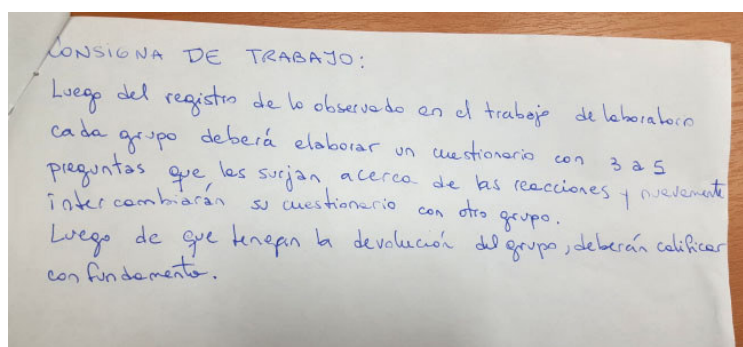 CONSIGNA DE TRABAJO:
Luego del registro de lo observado en el trabajo de laboratorio
cada grupo deberá elaborar un cuestionario con 3 a 5
preguntas que les surjan acerca de las reacciones y nuevamente
intercambiarán su cuestionario con otro grupo.
Luego de que tengan la devolución del grupo, deberán calificar
con fundamento.